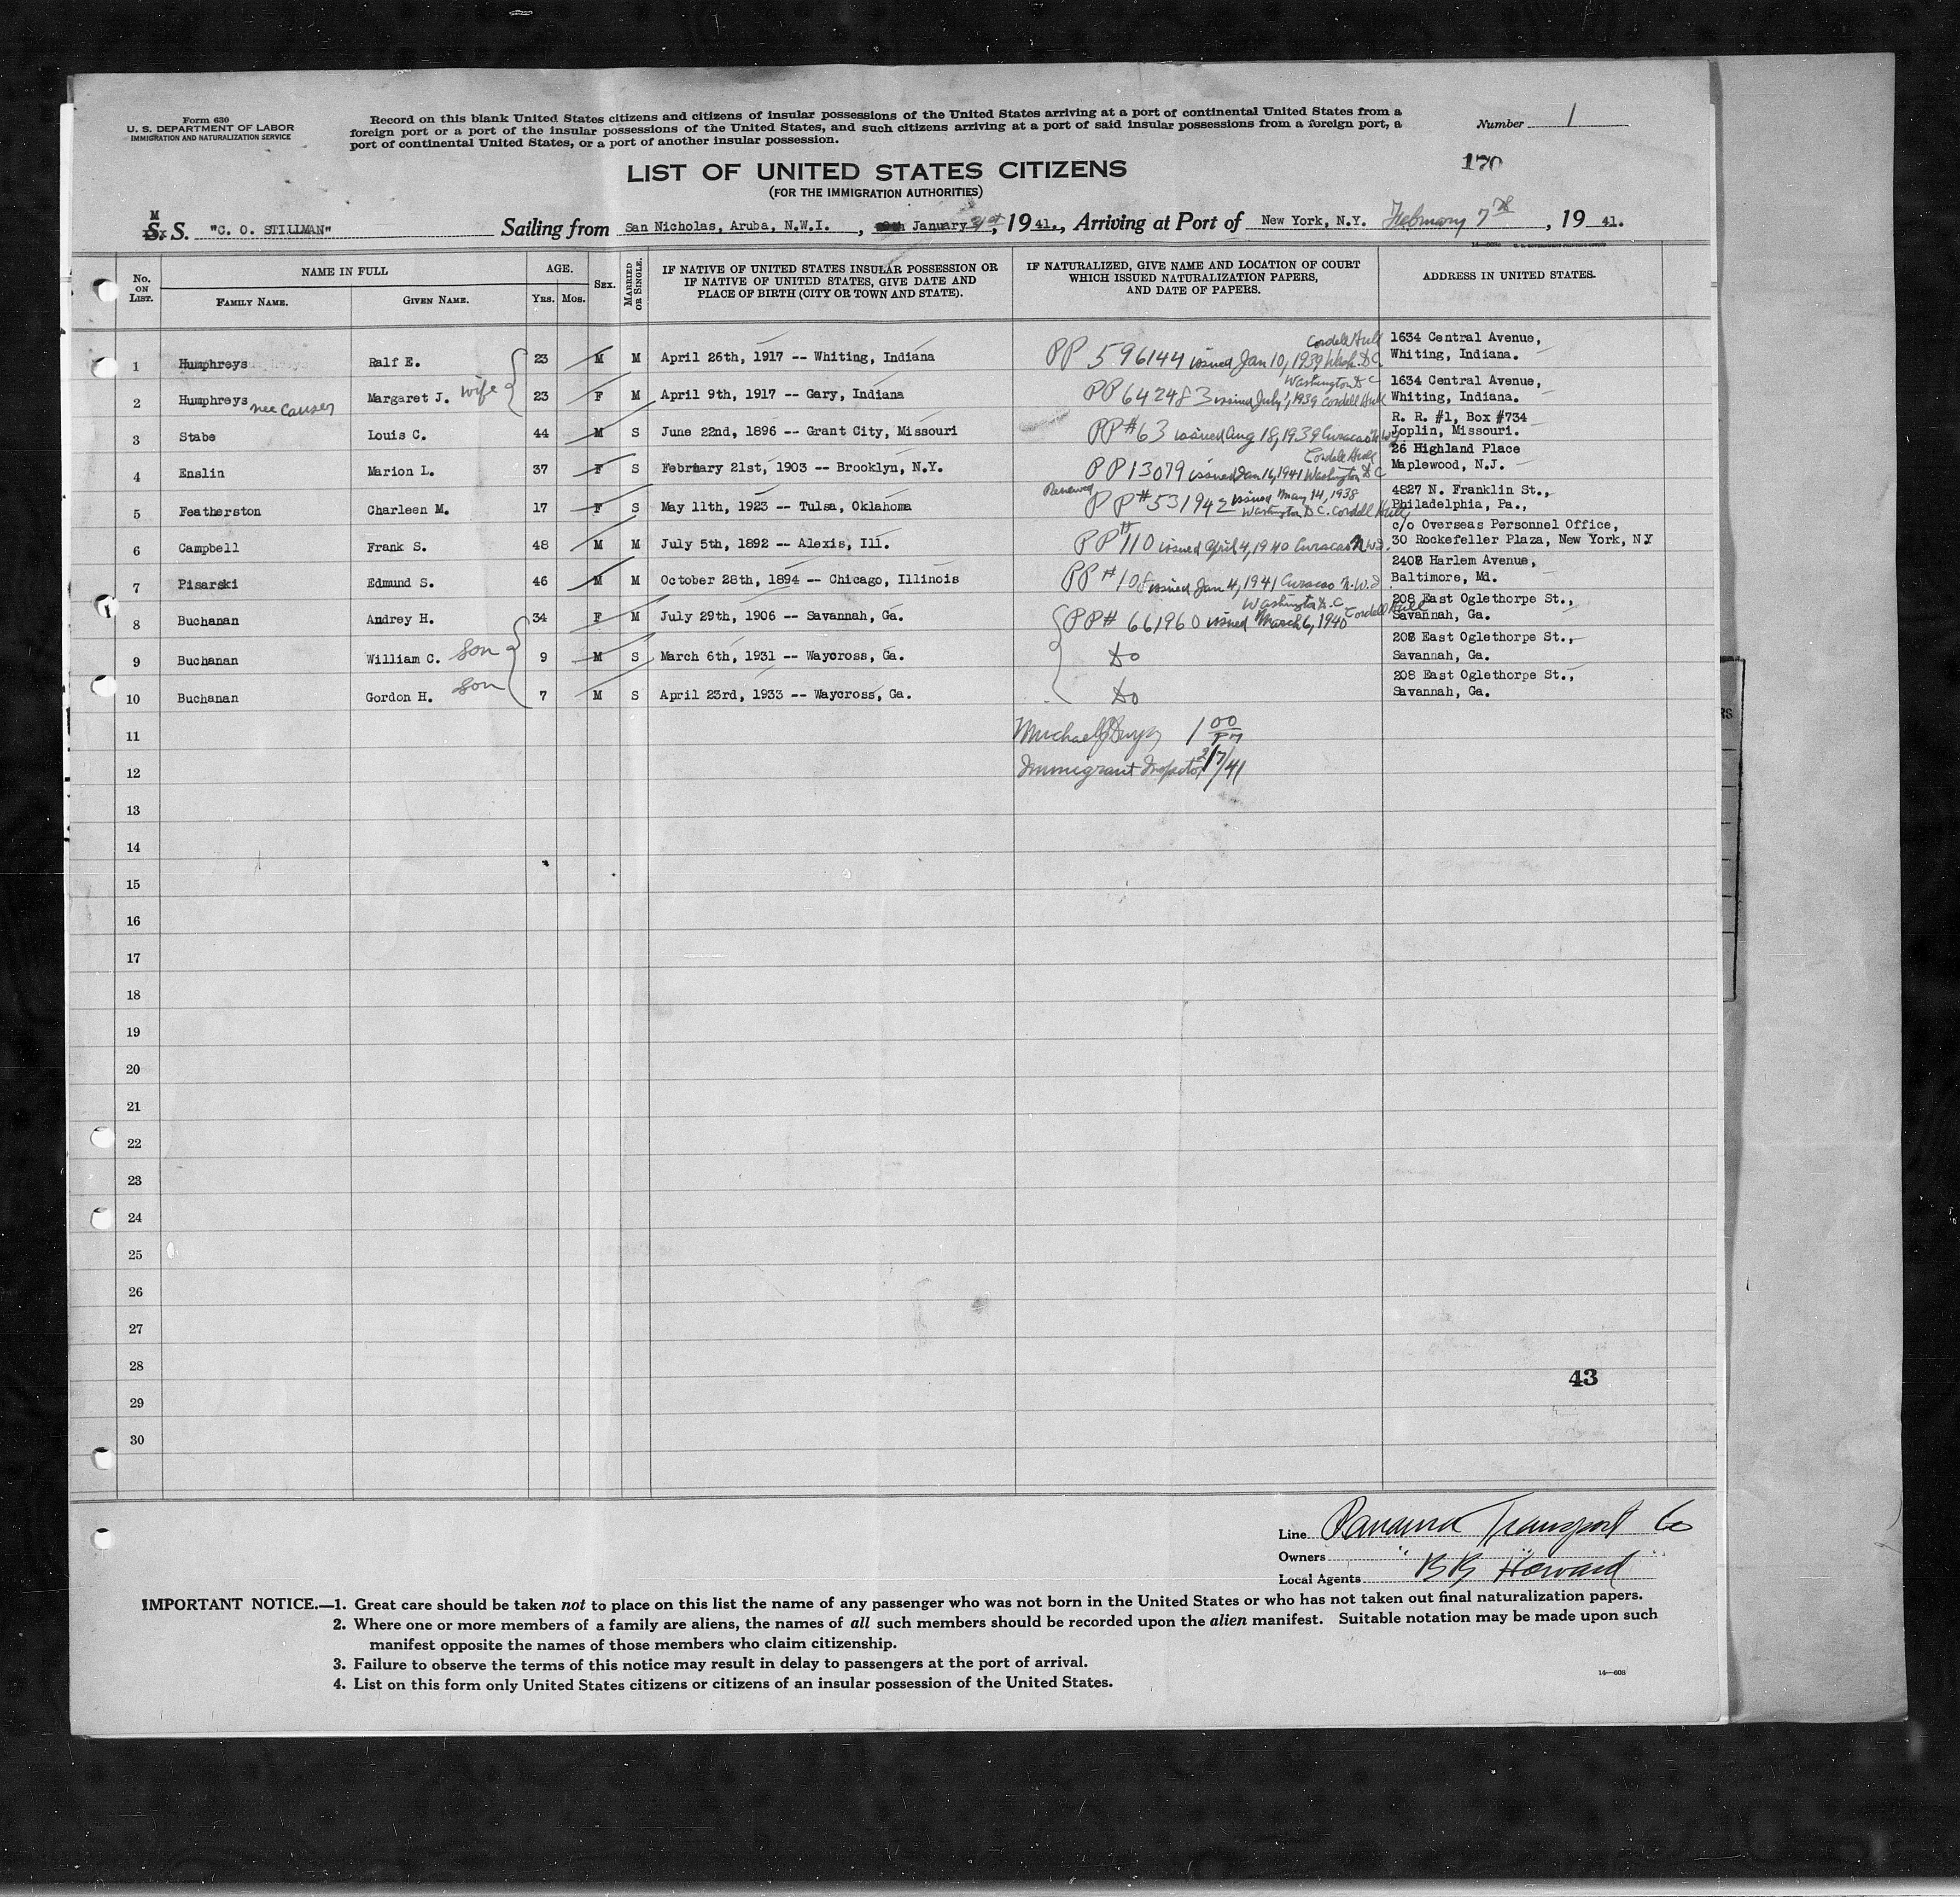 Form 630
U. S. DEPARTMENT OF LABOR
IMMIGRATION AND NATURALIZATION SERVICE
Record on this blank United States citizens and citizens of insular possessions of the United States arriving at a port of continental United States from a
foreign port or a port of the insular possessions of the United States, and such citizens arriving at a port of said insular possessions from a foreign port, a
port of continental United States, or a port of another insular possession.
Number 1
170
LIST OF UNITED STATES CITIZENS
(FOR THE IMMIGRATION AUTHORITIES)
M
S. S. "C. O. STILLMAN" Sailing from San Nicholas, Aruba, N.W.I. , January 31st, 19 41., Arriving at Port of New York, N.Y. February 7th , 19 41.
No. ON LIST. NAME IN FULL FAMILY NAME. GIVEN NAME. AGE. YRS. MOS. SEX. MARRIED OR SINGLE. IF NATIVE OF UNITED STATES INSULAR POSSESSION OR IF NATIVE OF UNITED STATES, GIVE DATE AND PLACE OF BIRTH (CITY OR TOWN AND STATE). IF NATURALIZED, GIVE NAME AND LOCATION OF COURT WHICH ISSUED NATURALIZATION PAPERS, AND DATE OF PAPERS. ADDRESS IN UNITED STATES.
1 Humphreys Ralf E. 23 M M April 26th, 1917 -- Whiting, Indiana PP 596144 issued Jan 10, 1939 Wash. D.C. Cordell Hull 1634 Central Avenue, Whiting, Indiana.
2 Humphreys nee Causer Margaret J. wife 23 F M April 9th, 1917 -- Gary, Indiana PP 642483 issued July 1, 1939 Cordell Hull Washington D C 1634 Central Avenue, Whiting, Indiana.
3 Stabe Louis C. 44 M S June 22nd, 1896 -- Grant City, Missouri PP #63 issued Aug 18, 1939 Curacao N W I R. R. #1, Box #734 Joplin, Missouri.
4 Enslin Marion L. 37 F S February 21st, 1903 -- Brooklyn, N.Y. PP 13079 issued Jan 16, 1941 Washington D C Cordell Hull 26 Highland Place Maplewood, N.J.
5 Featherston Charleen M. 17 F S May 11th, 1923 -- Tulsa, Oklahoma Renewed PP #531942 issued May 14, 1938 Washington D C. Cordell Hull 4827 N. Franklin St., Philadelphia, Pa.,
6 Campbell Frank S. 48 M M July 5th, 1892 -- Alexis, Ill. PP # 110 issued April 4, 1940 Curacao N.W.I. c/o Overseas Personnel Office, 30 Rockefeller Plaza, New York, N.Y
7 Pisarski Edmund S. 46 M M October 28th, 1894 -- Chicago, Illinois PP #108 issued Jan 4, 1941 Curacao N.W.I 2408 Harlem Avenue, Baltimore, Md.
8 Buchanan Andrey H. 34 F M July 29th, 1906 -- Savannah, Ga. PP# 661960 issued March 6, 1940 Washington D.C Cordell Hull 208 East Oglethorpe St., Savannah, Ga.
9 Buchanan William C. son 9 M S March 6th, 1931 -- Waycross, Ga. Do 208 East Oglethorpe St., Savannah, Ga.
10 Buchanan Gordon H. son 7 M S April 23rd, 1933 -- Waycross, Ga. Do 208 East Oglethorpe St., Savannah, Ga.
11 Michael 1 00 PM
12 Immigrant Inspector 2/7/41
13
14
15
16
17
18
19
20
21
22
23
24
25
26
27
28
43
29
30
Line Panama Transport Co
Owners " "
Local Agents B B Howard
IMPORTANT NOTICE.—1. Great care should be taken not to place on this list the name of any passenger who was not born in the United States or who has not taken out final naturalization papers.
2. Where one or more members of a family are aliens, the names of all such members should be recorded upon the alien manifest. Suitable notation may be made upon such
manifest opposite the names of those members who claim citizenship.
3. Failure to observe the terms of this notice may result in delay to passengers at the port of arrival.
4. List on this form only United States citizens or citizens of an insular possession of the United States.
14—608